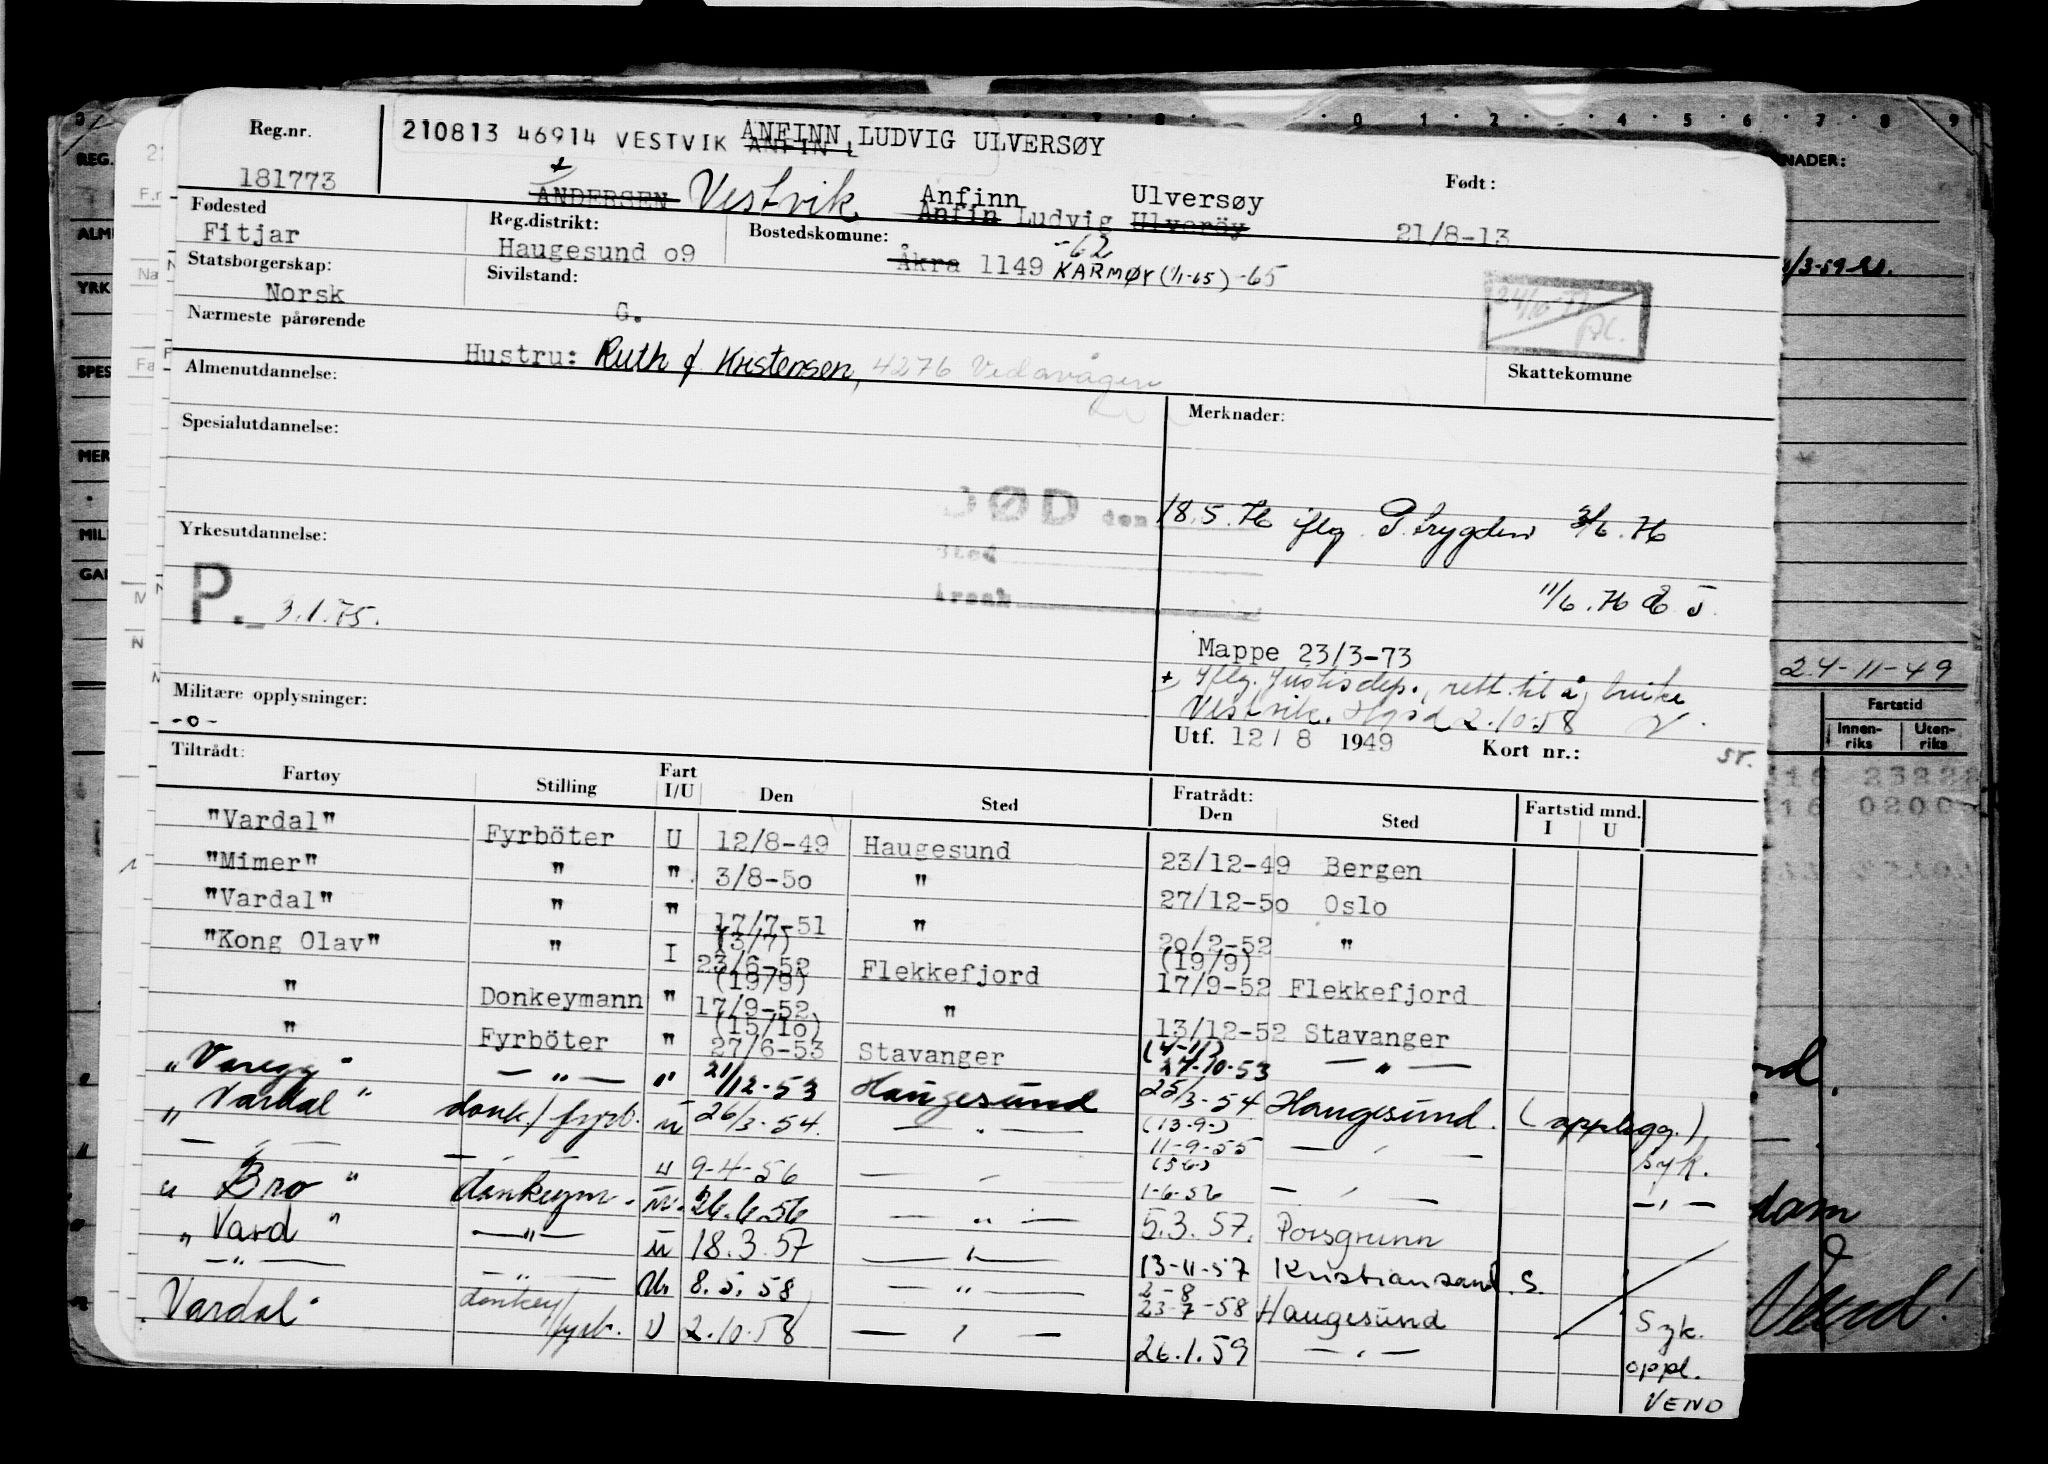 Reg.nr.
181773
210813 46914 VESTVIK ANFINN LUDVIG ULVERSØY
ANFIN L
+
ANDERSEN Vestvik Anfinn Ulversøy
Anfin Ludvig Ulveröy
Født:
21/8-13
Fødested
Fitjar
Reg.distrikt:
Haugesund o9
Bostedskomune:
-62
Åkra 1149 KARMØY (1/1-65) -65
Statsborgerskap:
Norsk
Sivilstand:
G.
Nærmeste pårørende
Hustru: Ruth f. Kristensen, 4276 Vedavågen
Skattekomune
Almenutdannelse:
Merknader:
Spesialutdannelse:
DØD den 18.5.76 iflg. P.trygden 3/6.76
Sted
Årsak
11/6.76
Yrkesutdannelse:
P. 3.1.75.
Mappe 23/3-73
+ Iflg. Justisdep. rett til å bruke
Vestvik. Hgsd 2.10.58
Militære opplysninger:
-o-
Utf. 12/8 1949 Kort nr.:
sr.
Tiltrådt:
Fartøy Stilling Fart I/U Den Sted Fratrådt: Den Sted Fartstid mnd. I U
"Vardal" Fyrböter U 12/8-49 Haugesund 23/12-49 Bergen
"Mimer" " " 3/8-5o " 27/12-5o Oslo
"Vardal" " " 17/7-51 " 2o/2-52 "
"Kong Olav" " I (3/7) 23/6-52 Flekkefjord (19/9) 17/9-52 Flekkefjord
" Donkeymann " (19/9) 17/9-52 " 13/12-52 Stavanger
" Fyrböter " (15/1o) 27/6-53 Stavanger (4-11) 27-10-53 — " —
"Varegg" — " — " 21/12-53 Haugesund 25/3-54 Haugesund. (opplagg.)
"Vardal" donk./fyrb. u 26/3-54. — " — (13-9-) 11-9-55 — " — syk.
— " — — " — u 9-4-56 — " — (5 6-) 1-6-56 — " — — " —
" Bro " donkeym. u. 26.6.56 — " — 5.3.57. Porsgrunn
" Vard " — " — u 18.3.57 — " — 13-11-57 Kristiansand. S.
— " — — " — U. 8.5.58 — " — 2-8 23-7-58 Haugesund Syk.
Vardal" donkey/fyrb. U 2.10.58 — " — 26.1.59 — " — oppl.
VEND
REG.
ALM
YRK
SPES
MER
MIL
NADER:
24-11-49
Fartstid
Innen-riks Uten-riks
Vend!